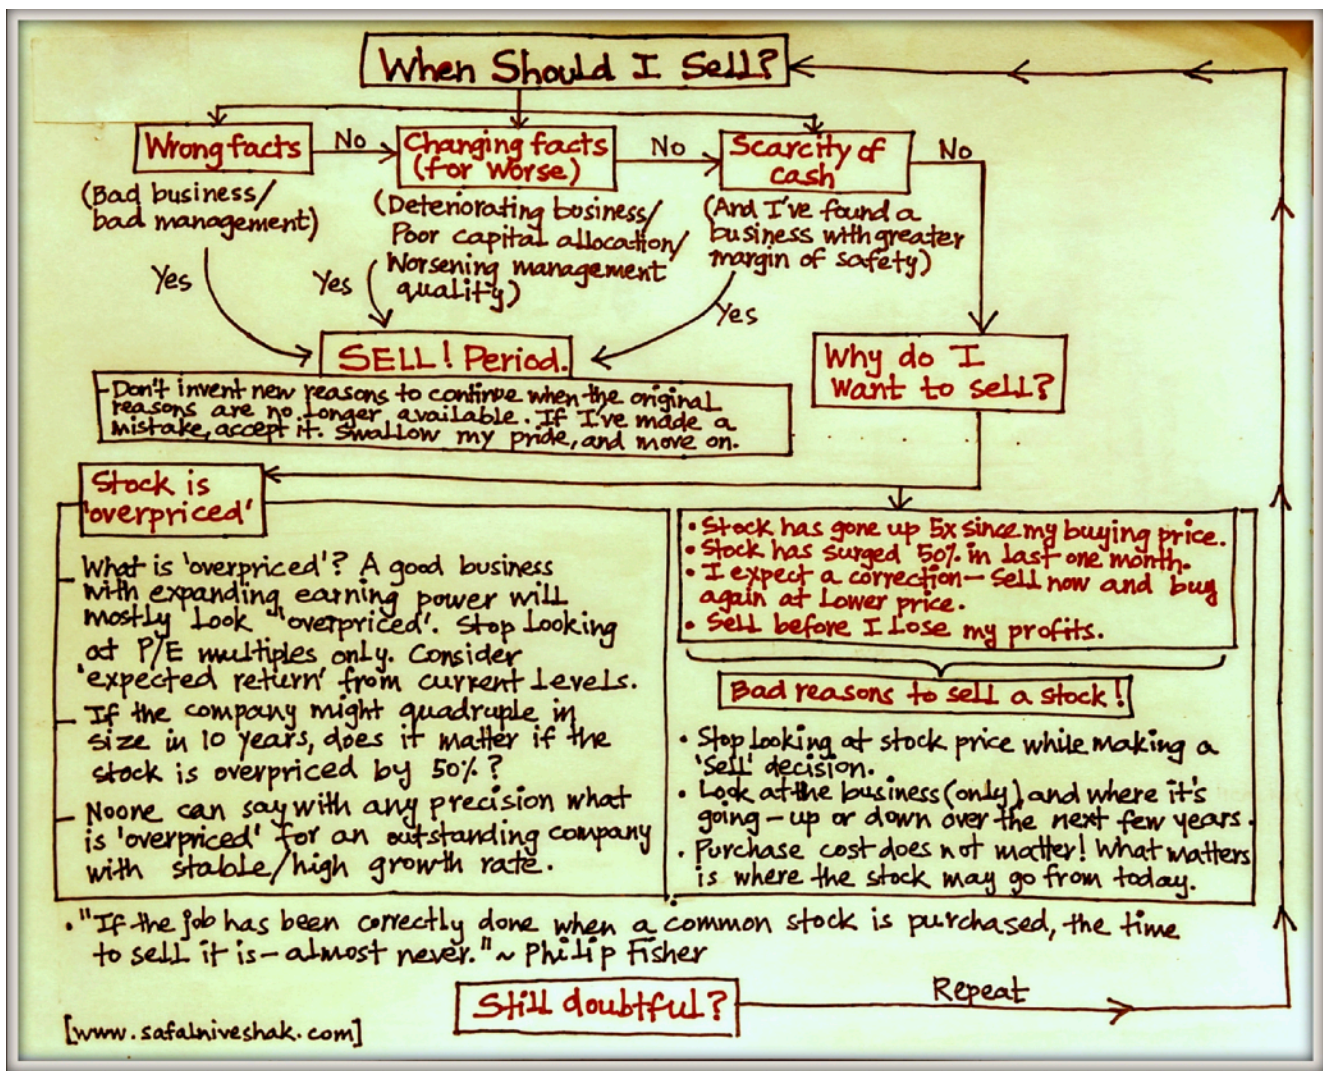 When Should I Sell?
Wrong facts
No
Changing facts
(for worse)
No
Scarcity of
cash
No
(Bad business/
bad management)
(Deteriorating business/
Poor capital allocation/
Worsening management
quality)
(And I've found a
business with greater
margin of safety)
Yes
Yes
Yes
SELL! Period.
Why do I
want to sell?
- Don't invent new reasons to continue when the original
reasons are no longer available. If I've made a
mistake, accept it. Swallow my pride, and move on.
Stock is
'overpriced'
- What is 'overpriced'? A good business
with expanding earning power will
mostly look 'overpriced'. Stop looking
at P/E multiples only. Consider
'expected return' from current levels.
- If the company might quadruple in
size in 10 years, does it matter if the
stock is overpriced by 50%?
- Noone can say with any precision what
is 'overpriced' for an outstanding company
with stable/high growth rate.
• Stock has gone up 5x since my buying price.
• Stock has surged 50% in last one month.
• I expect a correction - sell now and buy
again at lower price.
• Sell before I lose my profits.
Bad reasons to sell a stock!
• Stop looking at stock price while making a
'sell' decision.
• Look at the business (only) and where it's
going - up or down over the next few years.
• Purchase cost does not matter! What matters
is where the stock may go from today.
• "If the job has been correctly done when a common stock is purchased, the time
to sell it is - almost never." ~ Philip Fisher
Still doubtful?
Repeat
[www.safalniveshak.com]